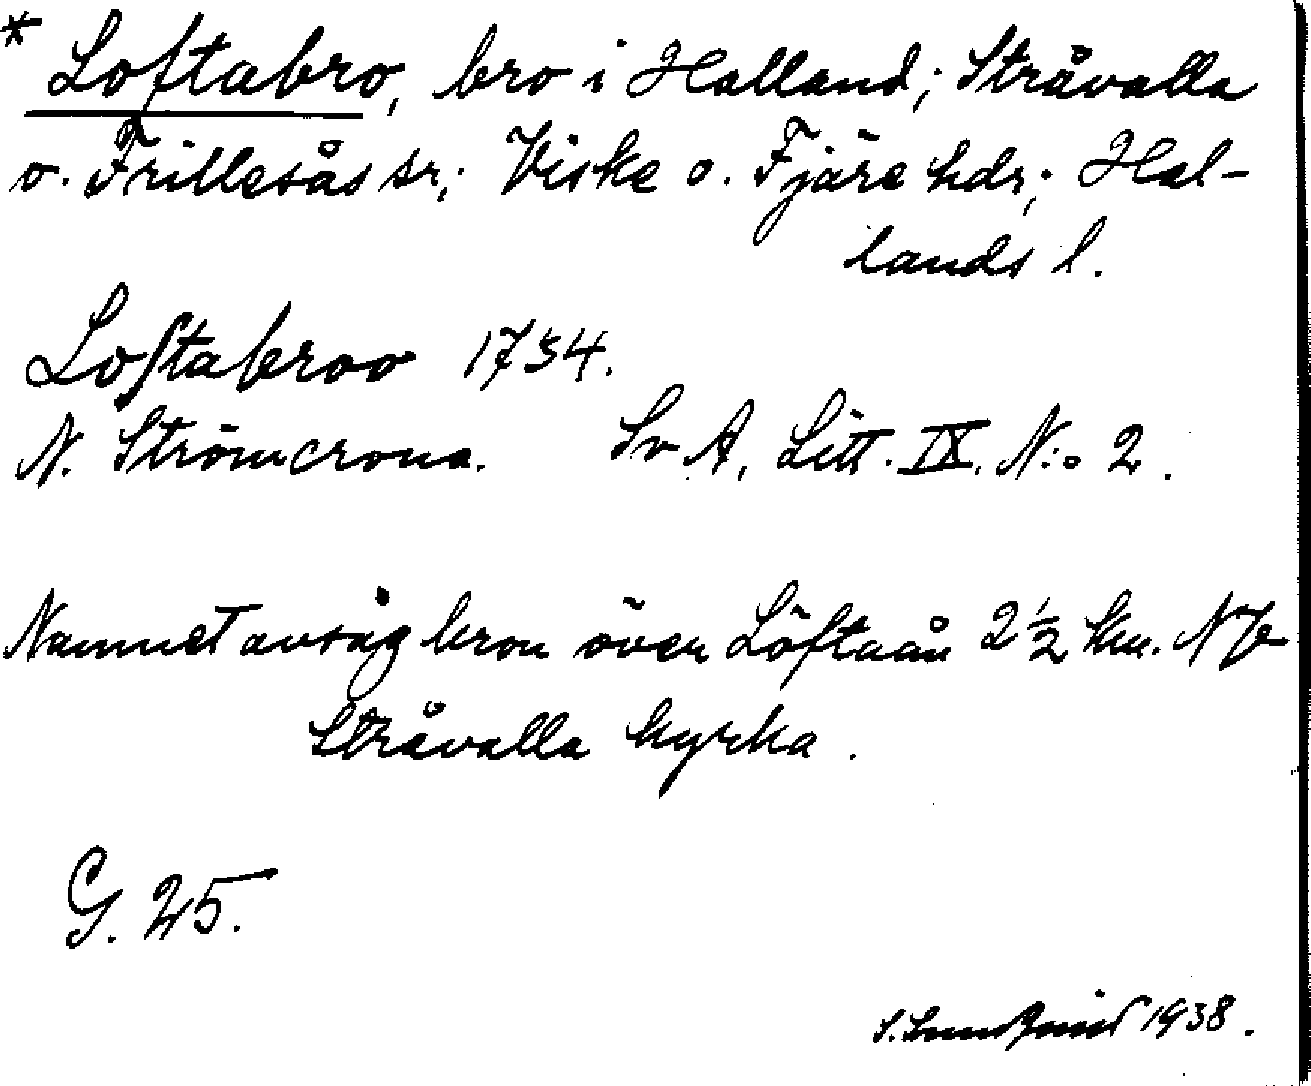 * Loftabro, bro i Halland; Stråvalla
o. Frillesås sr; Viske o. Fjäre hdr; Hal-
lands l.
Loftabroo 1734.
N. Strömcrona. Sv A, Litt. IX, N:o 2.
Namnet avsåg bron över Löftaån 2 1/2 km. N
Stråvalla kyrka.
G. 25.
S. 1938.